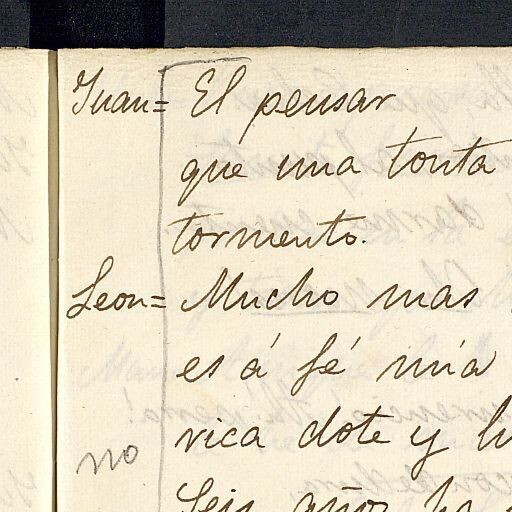 Juan= El pensar
que una tonta
tormento.
Leon= Mucho mas
es á fé mia
rica dote y
no
Seis años ha